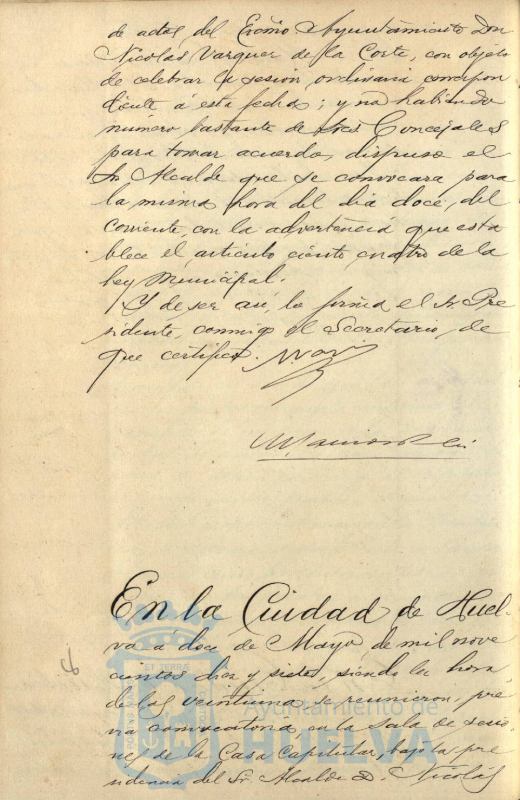 de actas del Excmo Ayuntamiento Don
Nicolás Vazquez de la Corte, con objeto
de celebrar la sesión ordinaria correspon
diente á esta fecha; y no habiendo
número bastante de Sres Concejales
para tomar acuerdo, dispuso el
Sr Alcalde que se convocara para
la misma hora del dia doce, del
corriente, con la advertencia que esta
blece el artículo ciento cuatro de la
ley Municipal.
Y de ser así, lo firma el Sr Pre
sidente, conmigo el Secretario, de
que certifico.
En la Ciudad de Huel-
va á doce de Mayo de mil nove
cientos diez y siete, siendo la hora
de las veintiuna se reunieron, pré
via convocatoria en la sala de sesio
nes de la Casa Capitular, bajo la pre
sidencia del Sr. Alcalde D. Nicolás
Ayuntamiento de
HUELVA